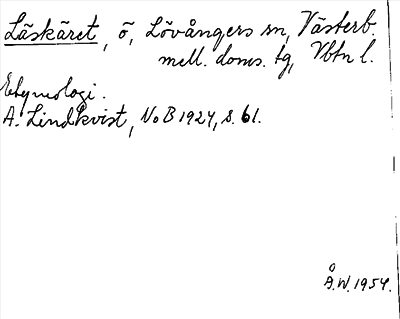 Läskäret, ö, Lövångers sn, Västerb.
mell. doms. tg, Vbtn l.
Etymologi.
A. Lindkvist, NoB 1927, s. 61.
Å.W. 1954.